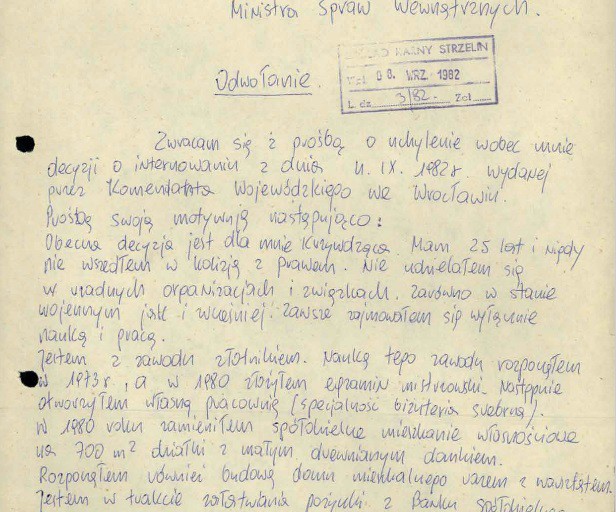 Ministra Spraw Wewnętrznych.
KARNY STRZELIN
08. WRZ. 1982
L. dz. 3/82 Zał.
Odwołanie.
Zwracam się z prośbą o uchylenie wobec mnie
decyzji o internowaniu z dnia IX. 1982r. wydanej
przez Komendanta Wojewódzkiego we Wrocławiu.
Prośbę swoją motywuję następująco:
Obecna decyzja jest dla mnie krzywdząca. Mam 25 lat i nigdy
nie wszedłem w kolizję z prawem. Nie udzielałem się
w żadnych organizacjach i związkach. Zarówno w stanie
wojennym jak i wcześniej. Zawsze zajmowałem się wyłącznie
nauką i pracą.
Jestem z zawodu złotnikiem. Naukę tego zawodu rozpocząłem
w 1973r, a w 1980 złożyłem egzamin mistrzowski. Następnie
otworzyłem własną pracownię (specjalność biżuteria srebrna).
W 1980 roku zamieniłem spółdzielcze mieszkanie własnościowe
na 700 m² działki z małym drewnianym domkiem.
Rozpocząłem również budowę domu mieszkalnego wraz z warsztatem.
Jestem w trakcie załatwiania pożyczki z Banku